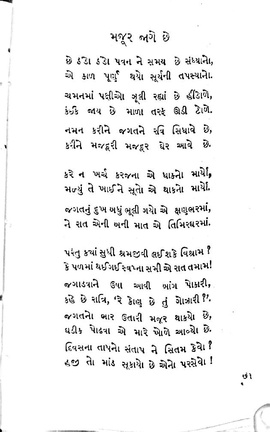 મજૂર જાગે છે
છે ઠંડો ઠંડો પવન ને સમય છે સંધ્યાનો,
એ કાળ પૂર્ણ થયો સૂર્યની તપસ્યાનો.
ચમનમાં પક્ષીઓ ઝૂલી રહ્યાં છે હીંડોળે,
કંઈક જાય છે માળા તરફ ઊડી ટોળે.
નમન કરીને જગતને રવિ સિધાવે છે,
કરીને મજદૂરી મજદૂર ઘેર આવે છે.
કરે ન ખર્ચ કરજના એ ધાકનો માર્યો,
મળ્યું તે ખાઈને સૂતો એ થાકનો માર્યો.
જગતનું દુઃખ બધું ભૂલી ગયો એ ક્ષણભરમાં,
ને રાત એની બની માત એ તિમિરઘરમાં.
પરંતુ ક્યાં સુધી શ્રમજીવી લઈ શકે વિશ્રામ ?
કે પળમાં થઈ ગઈ સ્વપ્ના સમી એ રાત તમામ!
જગાડવાને ઉષા આવી બાંગ પોકારી,
કહે છે રાત્રિ, 'રે કોણ છે તું ગોઝારી ?'.
જગતનો ભાર ઉતારી મજૂર થાક્યો છે,
ઘડીક પોઢવા એ મારે ખોળે આવ્યો છે.
દિવસના તાપનો સંતાપ ને સિતમ કેવો ?
હજી તો માંડ સૂકાયો છે એનો પરસેવો !
૭૧